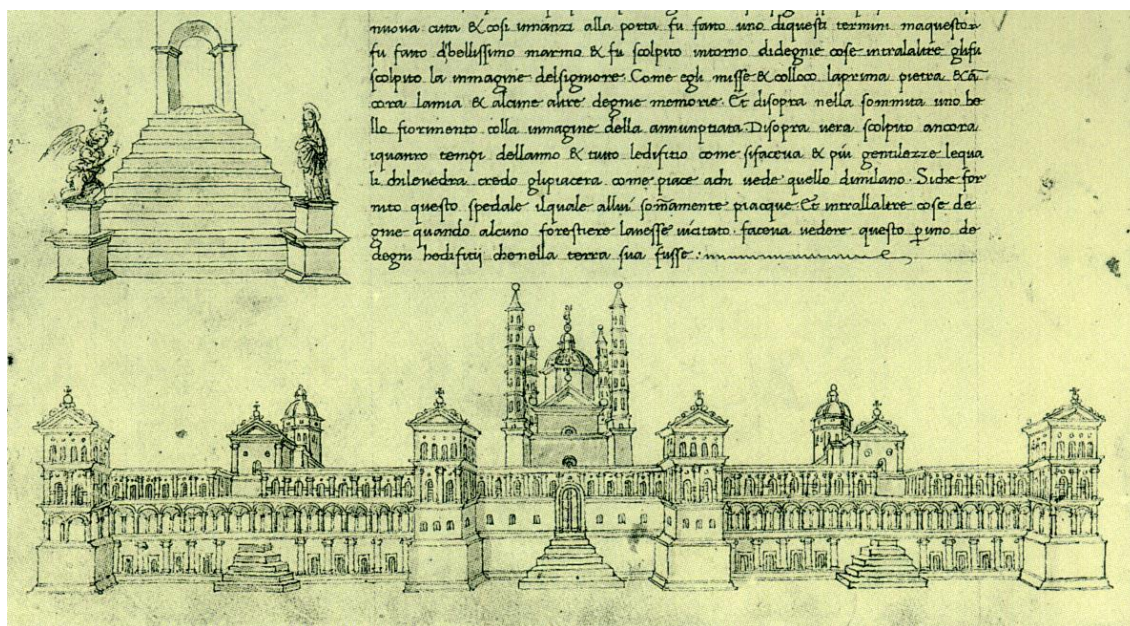 nuova citta & cosi innanzi alla porta fu fatto uno diquesti termini maquesto
fu fatto d'bellissimo marmo & fu scolpito intorno didegnie cose intralaltre glifu
scolpito la inmagine delsignore. Come egli misse & colloco laprima pietra &
cora lamia & alcune altre degnie memorie. Et disopra nella sommita uno be
llo fiorimento colla inmagine della annunptiata. Disopra vera scolpito ancora
iquatro tempi dellanno & tutto ledifitio come sifaceva & piu gentilezze lequa
li chilevedra credo glipiacera come piace achi vede quello dimilano. Siche for
nito questo spedale ilquale allui somamente piacque. Et intrallaltre cose de
gnie quando alcuno forestiere lavesse vicitato. faceva vedere questo p uno de
degni hedifitij chenella terra sua fusse.